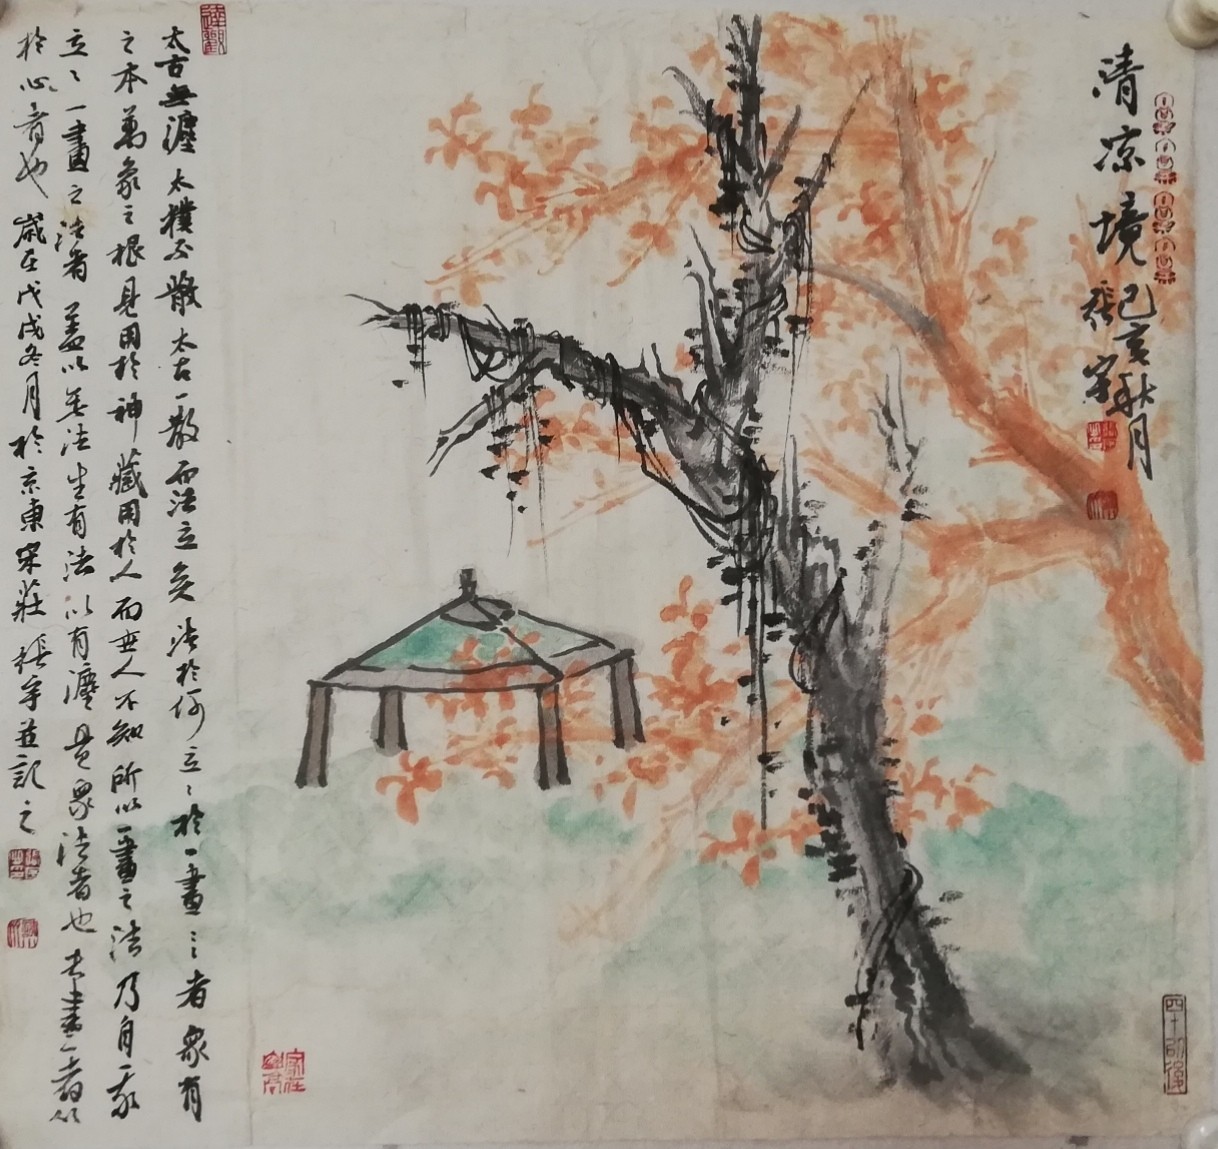 清凉境
己亥秋月
張宇
太古無灋太樸不散太古一散而法立矣法於何立立於一畫一畫者衆有
之本萬象之根見用於神藏用於人而世人不知所以一畫之法乃自我
立立一畫之法者蓋以無法生有法以有灋貫衆法者也夫畫者從
於心者也 歲在戊戌冬月於京東宋莊張宇並記之
四十以後